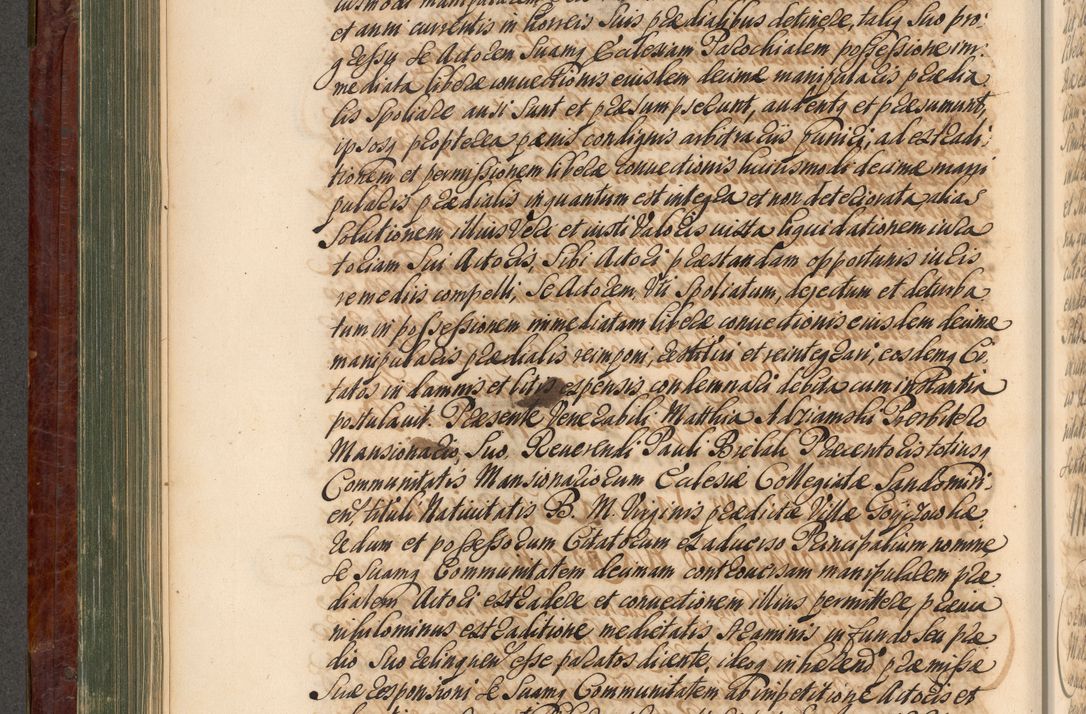 et anni currentis in horreis suis prædialibus detinere, talisq suo pro:
gressu se Actorem suamq Ecclesiam Parochialem possessione im:
mediata liberæ convectionis eiusdem decimæ manipularis prædia
lis spoliare ausi sunt et præsumpserunt, audentq et præsumunt,
ipsosq propterea pænis condignis arbitrariis puniri, ad extradi
tionem et permissionem liberæ convectionis huiusmodi decimæ mani
pularis prædialis inquantum est integra et non deteriorata, alias
Solutionem illius Veri et iusti Valoris iuxta liquidationem iura
toriam sui Actoris, Sibi Actori præstandam opportunis iuris
remediis compelli, Se Actorem, Uti Spoliatum, dejectum et deturba
tum in possessionem immediatam liberæ convectionis eiusdem decimæ
manipularis prædialis reimponi, restitui et reintegrari, eosdemq Ci,
tatos in damnis et litis expensis condemnari debita cum instantia
postulavit. Præsente Venerabili Matthia Adziamski Presbitero
Mansionario, Suo, Reverendi Pauli Bielali Præcentoris totiusq
Communitatis Mansionariorum Ecclesiæ Collegiatæ Sandomiri:
en, tituli Nativitatis B. M. Virginis prædictæ Villæ
redum et possessorum Citatorum ex adverso Principalium nomine
Se suamq Communitatem decimam controversam manipularem præ
dialem Actori extradere et convectionem illius permittere prævia
nihilominus extraditione medietatis straminis in fundo seu præ
dio suo relinquen esse paratos dicente, ideoq inhæren præmissæ
Suæ responsioni Se suamq Communitatem ab impetitione Actoris et